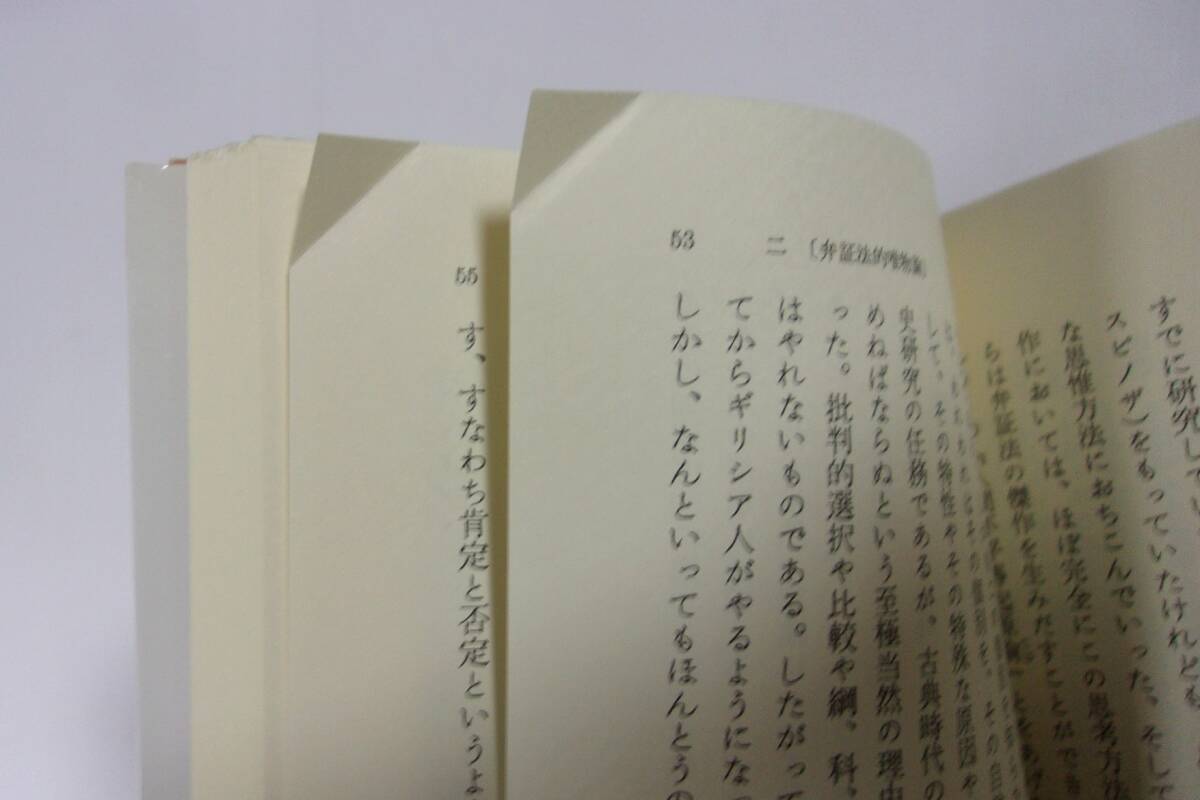 すでに研究してい
スピノザ)をもっていたけれども
な思惟方法におちこんでいった。そして
作においては、ほぼ完全にこの思考方法
らは弁証法の傑作を生みだすことができ
二 〔弁証法的唯物論〕
53
して、その特性やその特殊な原因や
史研究の任務であるが、古典時代の
めねばならぬという至極当然の理由
った。批判的選択や比較や綱、科、
はやれないものである。したがって
てからギリシア人がやるようになっ
しかし、なんといってもほんとうの
55
す、すなわち肯定と否定というよ